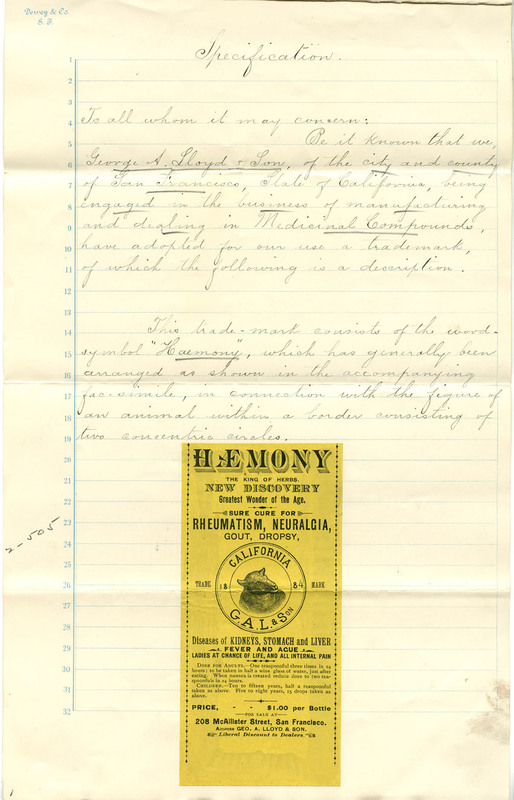 Dewey & Co.
S. F.
Specification.
To all whom it may concern:
Be it known that we,
George A. Lloyd & Son, of the city and county
of San Francisco, State of California, being
engaged in the business of manufacturing
and dealing in Medicinal Compounds,
have adopted for our use a trademark,
of which the following is a description.
This trade-mark consists of the word-
symbol "Haemony", which has generally been
arranged as shown in the accompanying
fac-simile, in connection with the figure of
an animal within a border consisting of
two concentric circles.
1
2
3
4
5
6
7
8
9
10
11
12
13
14
15
16
17
18
19
20
21
22
23
24
25
26
27
28
29
30
31
32
2-505
HÆMONY
THE KING OF HERBS.
NEW DISCOVERY
Greatest Wonder of the Age.
SURE CURE FOR
RHEUMATISM, NEURALGIA,
GOUT, DROPSY,
CALIFORNIA
TRADE 18 84 MARK
G.A.L. & SON
Diseases of KIDNEYS, STOMACH and LIVER
FEVER AND AGUE
LADIES AT CHANGE OF LIFE, AND ALL INTERNAL PAIN
DOSE FOR ADULTS.—One teaspoonful three times in 24
hours: to be taken in half a wine glass of water, just after
eating. When nausea is created reduce dose to two tea-
spoonfuls in 24 hours.
CHILDREN.—Ten to fifteen years, half a teaspoonful
taken as above. Five to eight years, 15 drops taken as
above.
PRICE, - - $1.00 per Bottle
FOR SALE AT
208 McAllister Street, San Francisco.
Address GEO. A. LLOYD & SON.
Liberal Discount to Dealers.